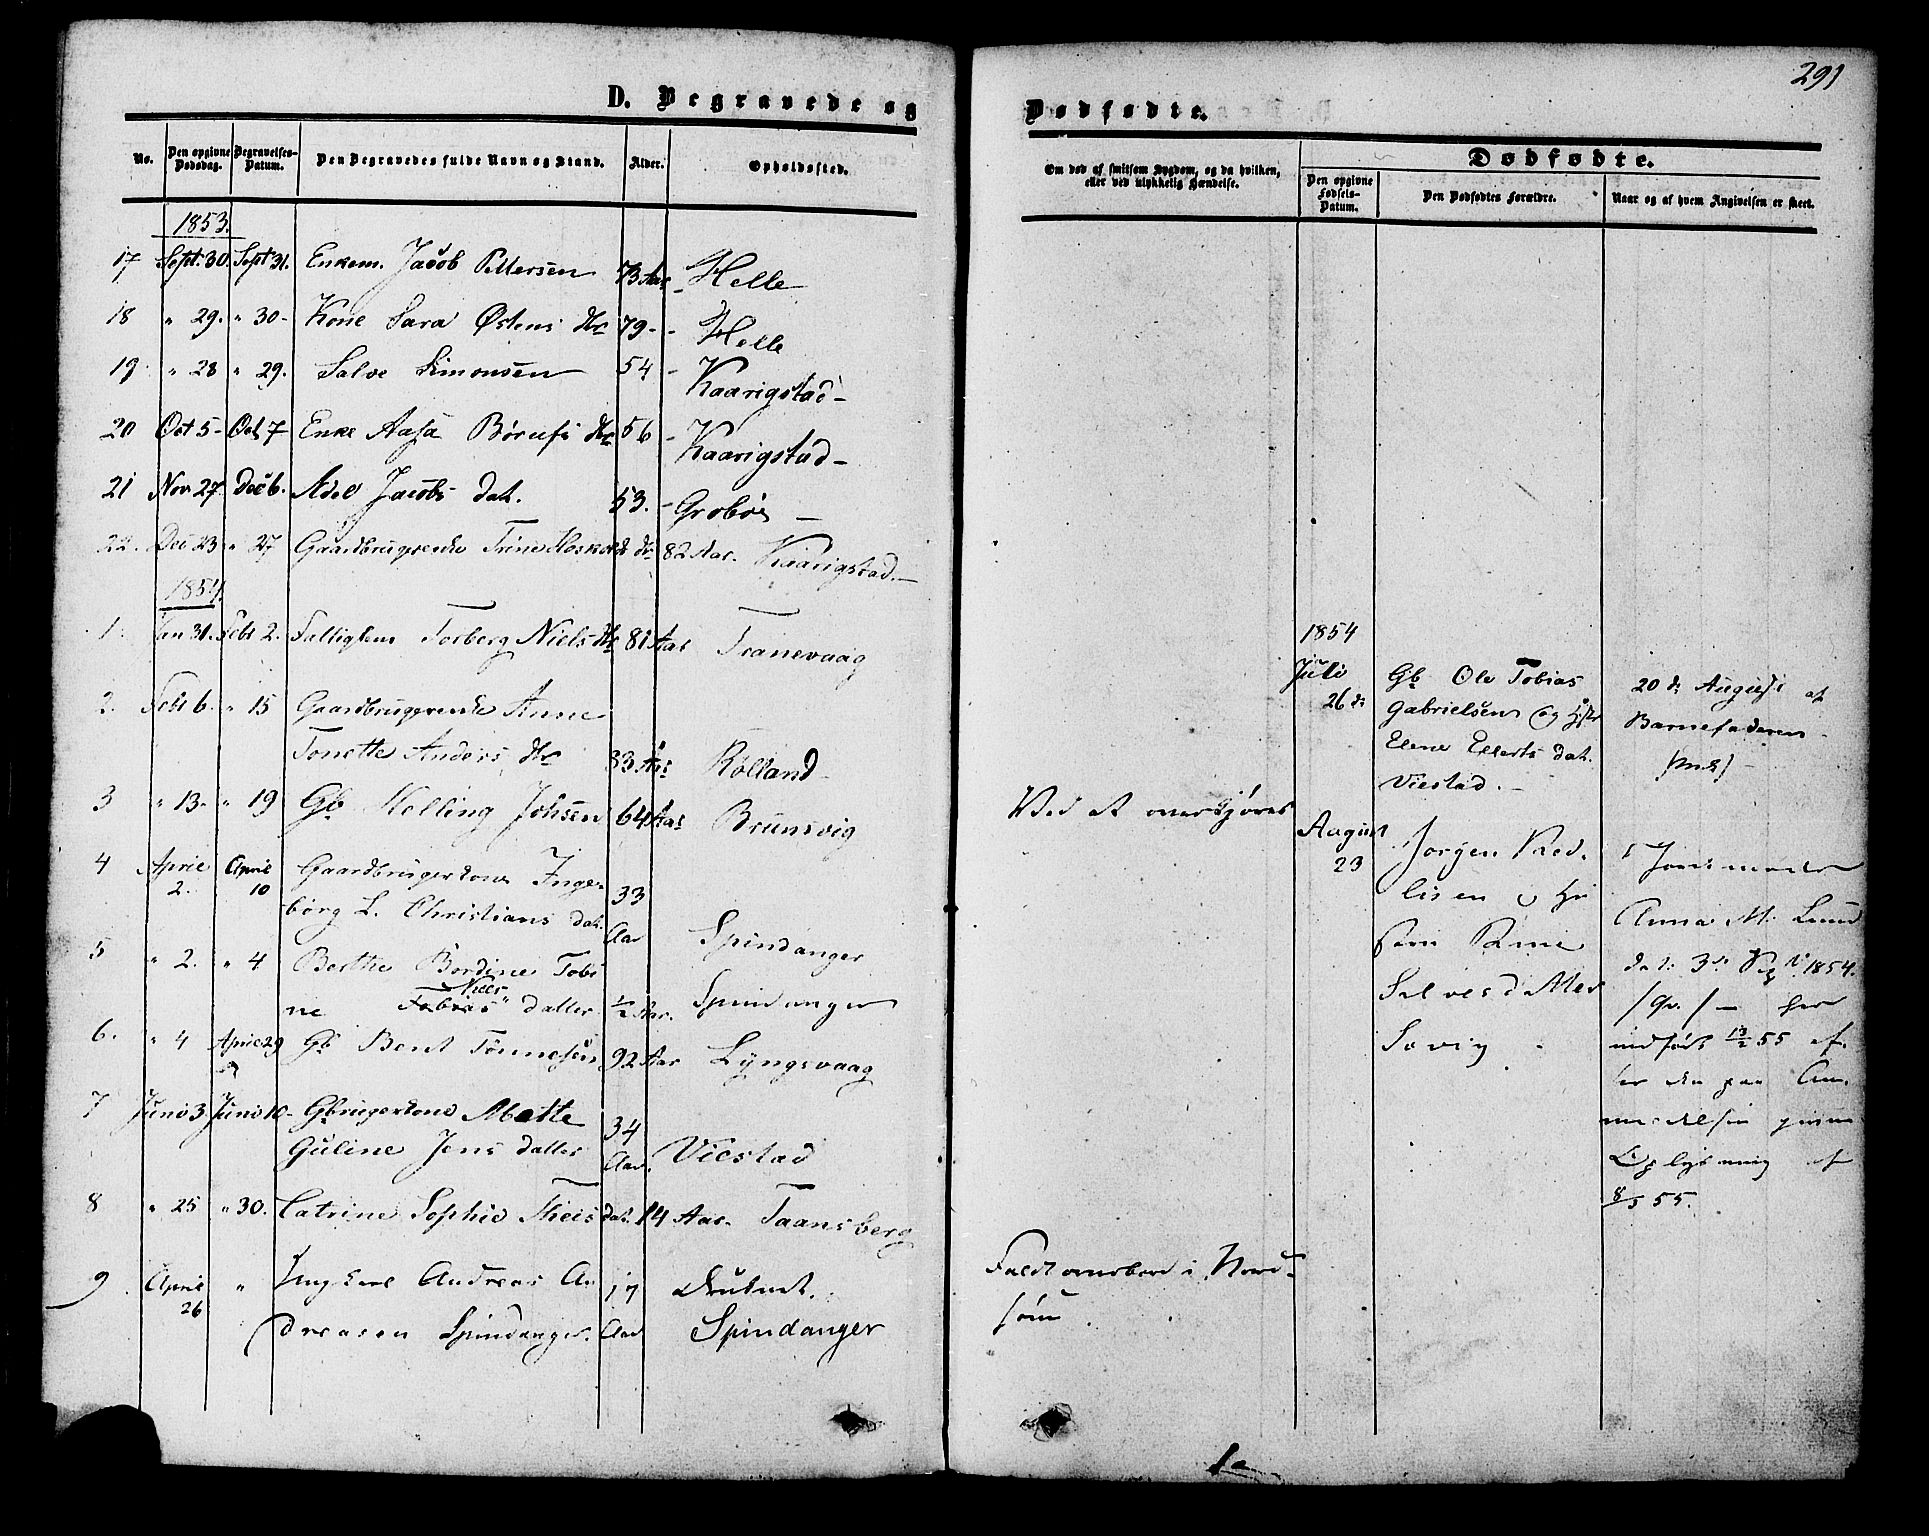 D. Begravede og
No.
Den opgivne Dødsdag.
Begravelses-Datum.
Den Begravedes fulde Navn og Stand.
Alder.
Opholdssted.
1853.
17 Sept. 30. Sept 31. Enkem. Jacob Pettersen 73 Aar Helle
18 " 29. " 30 - Kone Sara Østens dtr 79 - - Helle
19 " 28 " 29. Salve Simonsen 54 - Kaarigstad -
20 Oct 5 - Oct 7 Enke Aasa Børufs dtr 56 - Kaarigstad -
21 Nov. 27. Dec 6. Adel Jacobs dat. 53. - Grobøe -
22. Dec 23 " 27 Gaardbrugerenke Trine dtr 82 Aar. Kaarigstad. -
1854.
1. Jan 31. Febr 2. Fattiglem Torberg Niels dtr 81 Aar Tranevaag
2. Feb 6. " 15 Gaardbrugerenke Anne
Tonette Anders dtr 83 Aar Rølland
3 " 13 - " 19 Gb. Helling Johsen 64 Aar Brunsvig
4 April 2. April 10 Gaardbrugerkone Inge-
borg L. Christians dat. 33 Aar Spindanger
5 " 2. " 4 Berthe Bordine Tobi
Niels
ne Tobias datter ½ Aar. Spindanger
6. " 4 April 29 Gb Bent Tønnesen 92 Aar Lyngsvaag
7 Juni 3 Juni 10 - Gbrugerkone Mette
Guline Jens datter 34 Aar. Viestad
8 " 25 " 30. Catrine Sophie Theis dat. 14 Aar. Taansberg
9 April 26 " Ungkarl Andreas An
dreasen Spindanger. 17 Aar druknet.
Spindanger
291
Dødfødte.
Om død af smitsom Sygdom, og da hvilken,
eller ved ulykkelig Hændelse.
Dødfødte.
Den opgivne Fødsels-Datum.
Den Dødfødtes Forældre.
Naar og af hvem Angivelsen er skeet.
Ved at overkjøres
Faldt overbord i Nord-
søen
1854
Juli 26 de
Gb. Ole Tobias
Gabrielsen og Hstr
Elene Ellerts dat.
Viestad. -
20 de August af
Barnefaderen -
August 23
Jørgen
Salves d
Jordemoder
Anna M. Lund
dat. 3 de 1854.
indført 13/2 55 af
Oplysning af
8/5 55.